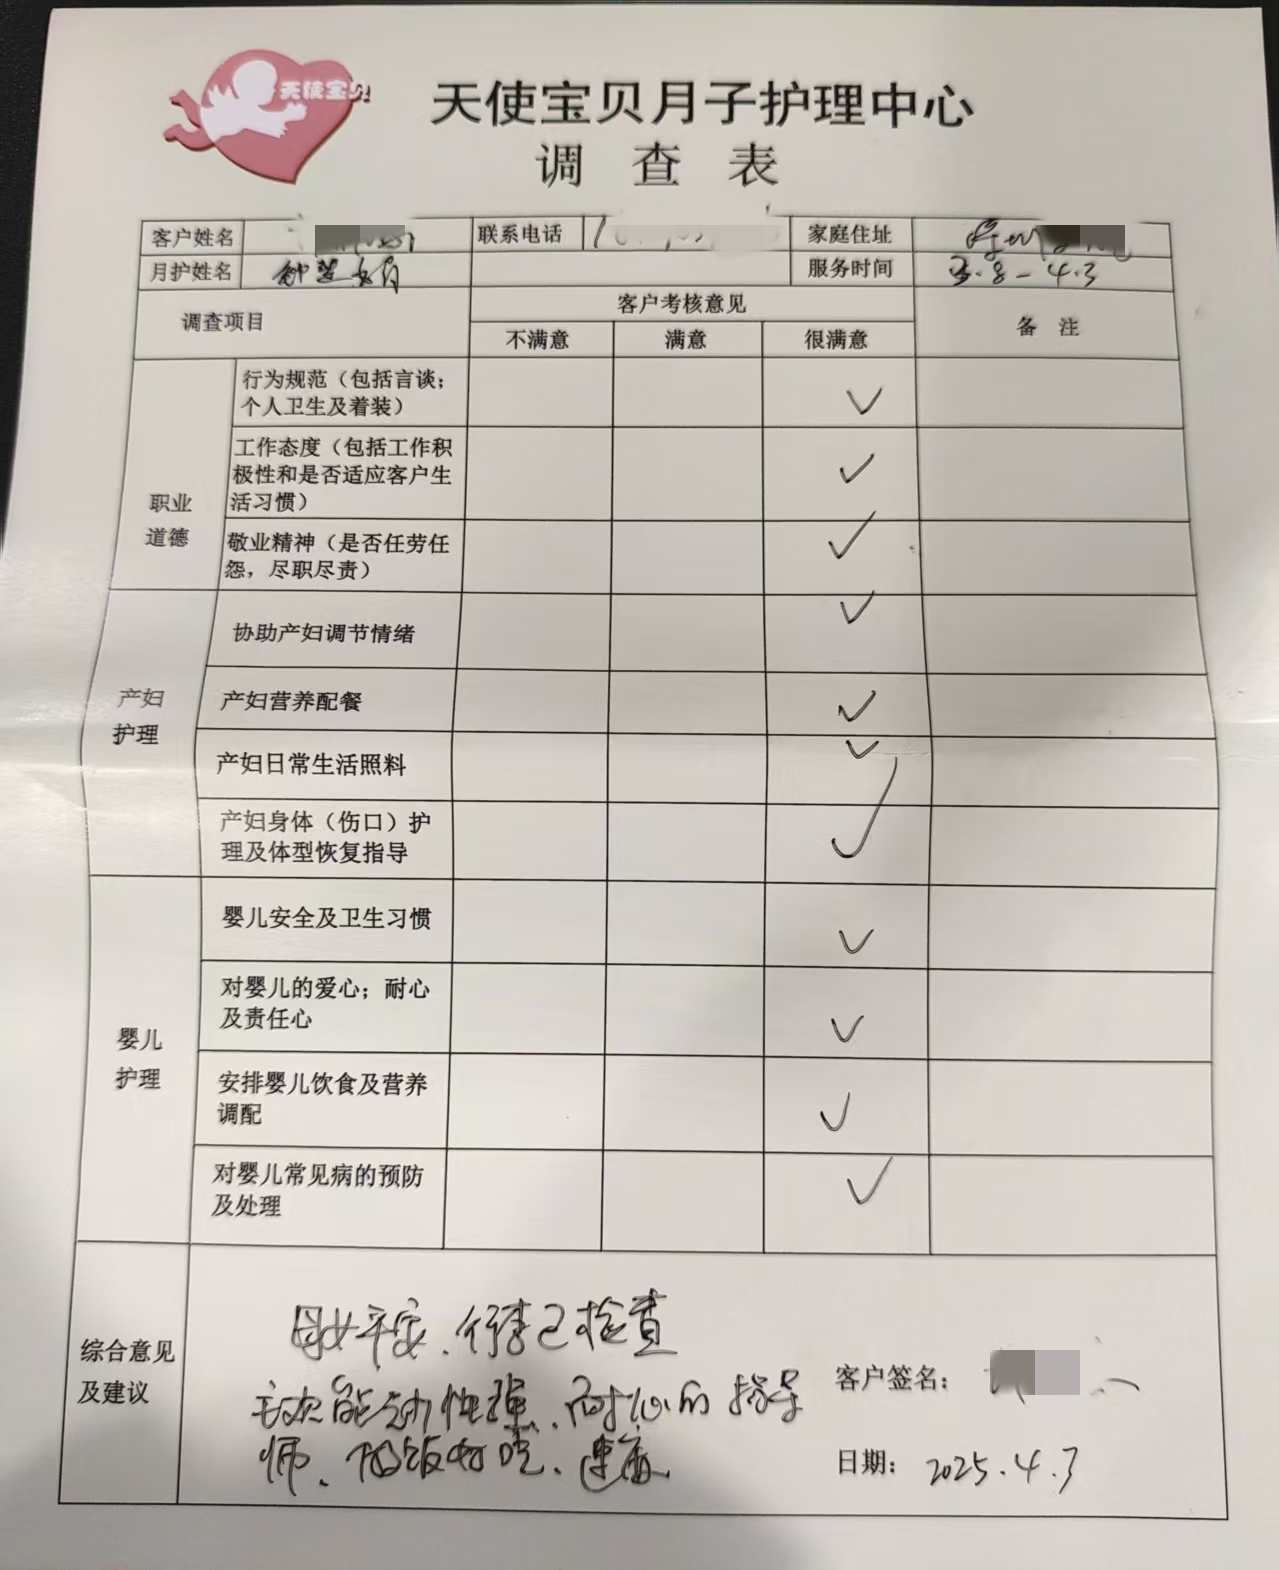 天使宝贝
天使宝贝月子护理中心
调查表
客户姓名 联系电话 家庭住址
月护姓名 服务时间 3.8-4.3
调查项目 客户考核意见 备注
不满意 满意 很满意
职业
道德
行为规范（包括言谈；
个人卫生及着装） ✓
工作态度（包括工作积
极性和是否适应客户生
活习惯） ✓
敬业精神（是否任劳任
怨，尽职尽责） ✓
产妇
护理
协助产妇调节情绪 ✓
产妇营养配餐 ✓
产妇日常生活照料 ✓
产妇身体（伤口）护
理及体型恢复指导 ✓
婴儿
护理
婴儿安全及卫生习惯 ✓
对婴儿的爱心；耐心
及责任心 ✓
安排婴儿饮食及营养
调配 ✓
对婴儿常见病的预防
及处理 ✓
综合意见
及建议
母女平安、行李已检查
主次能动性强、耐心的指导
师、做饭好吃、
客户签名：
日期：2025.4.3